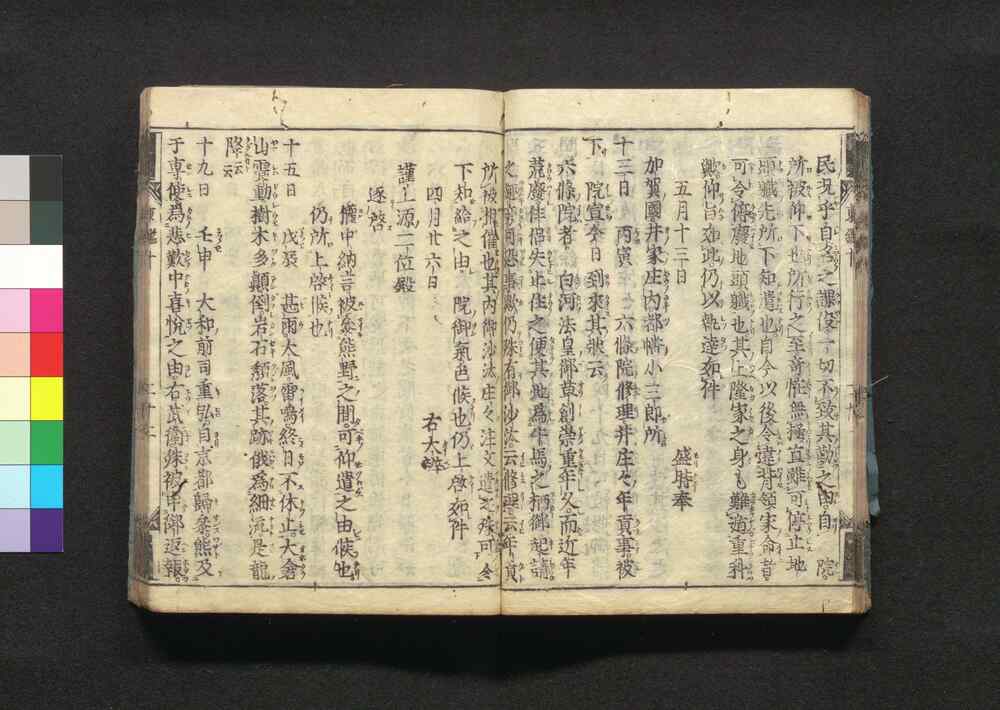 民兄乎自名之課役一切不致其勤之由自　院
所被仰下也所行之至奇恠無極直雖可停止地
頭職先所下知遣也自今以後令違背領家命者
可令停廢地頭職也其上隆家之身も難遁重科
歟仰旨如此仍以執達如件
五月十二日　盛時奉
加賀國井家庄内都幡小三郎所
十三日　丙寅　六條院修理并庄々年貢事被
下　院宣今日到來其狀云
六條院者　白河法皇御草創崇重年久而近年
荒廢伴侶失止住之便其地爲牛馬之栖御起請
之趣旁可恐事歟仍殊有御沙汰云修理云年貢
所被相催也其内御沙汰庄々注文遣之殊可令
下知給之由　院御氣色候也仍上啓如件
四月廿六日　右大辨
謹上源二位殿
逐啓
帥中納言被參熊野之間可仰遣之由候也
仍所上啓候也
十五日　戊辰　甚雨大風雷鳴終日不休止大倉
山震動樹木多顛倒岩石頽落其跡俄爲細流是龍
降云云
十九日　壬申　大和前司重弘自京都歸參熊及
于専使爲悲歎中喜悅之由右武衛殊被申御返報